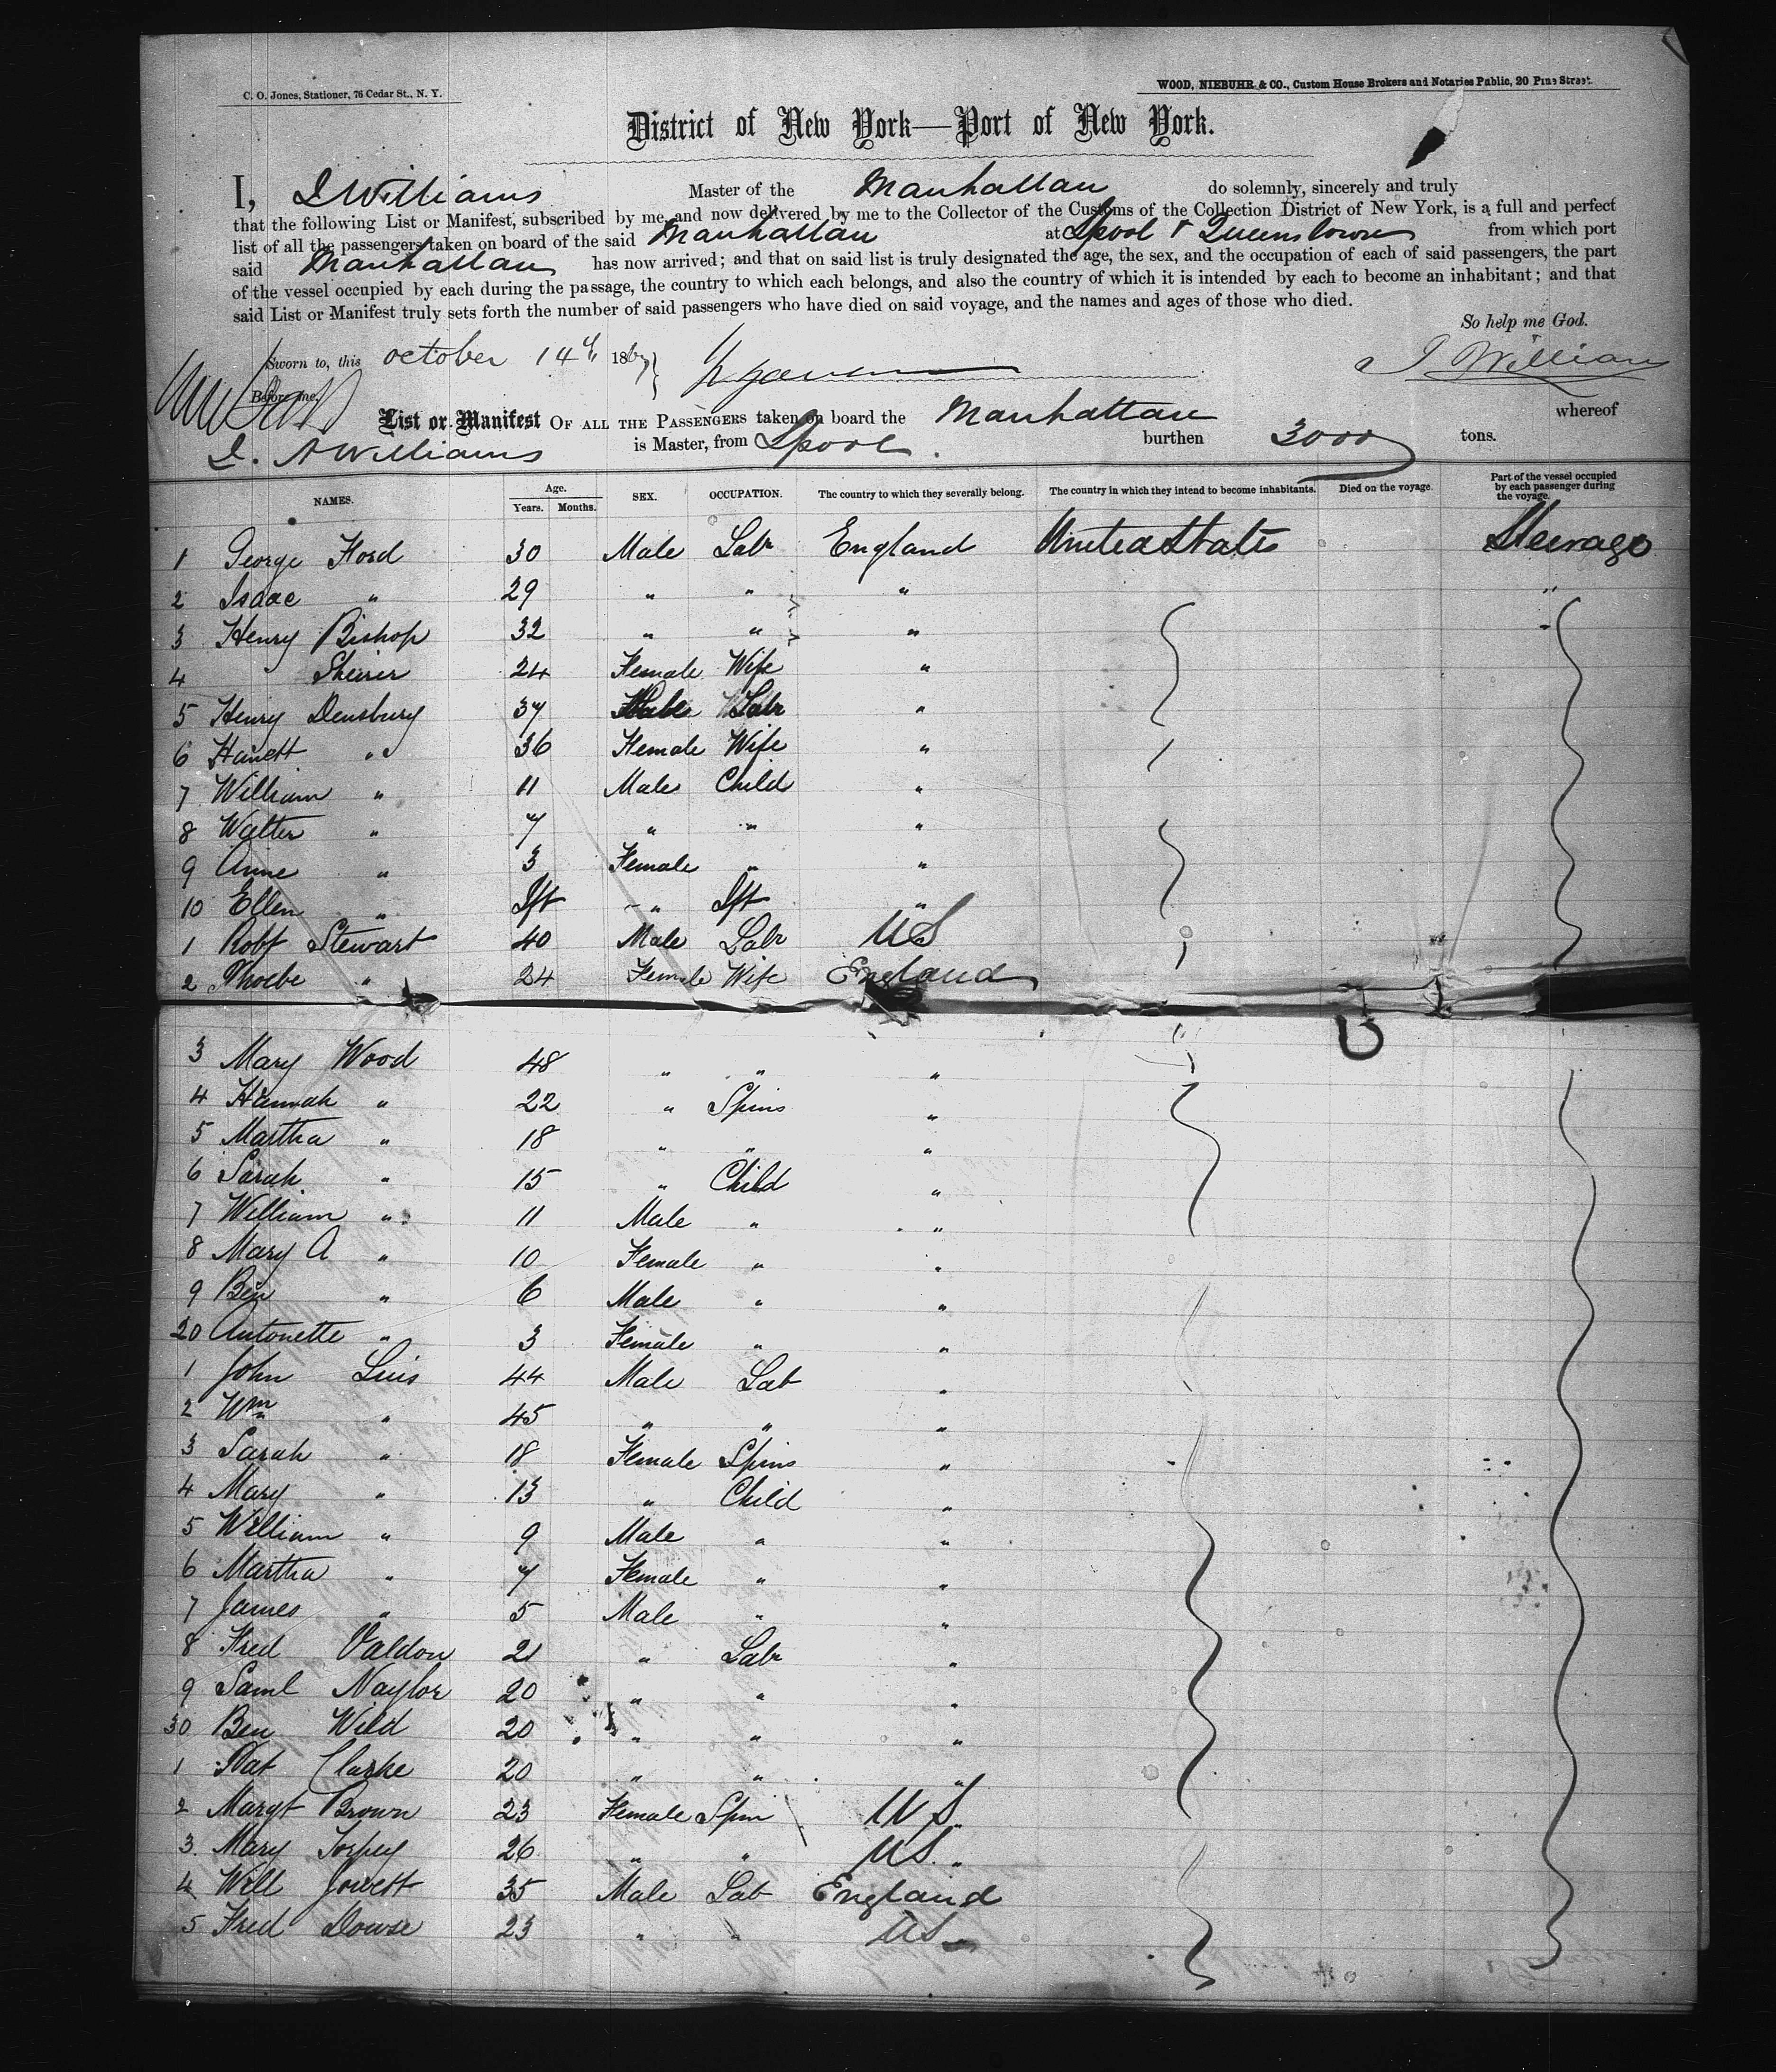 C. O. Jones, Stationer, 76 Cedar St., N. Y.
WOOD, NIEBUHR & CO., Custom House Brokers and Notaries Public, 20 Pine Street.
District of New York—Port of New York.
I, J Williams Master of the Manhattan do solemnly, sincerely and truly
that the following List or Manifest, subscribed by me, and now delivered by me to the Collector of the Customs of the Collection District of New York, is a full and perfect
list of all the passengers taken on board of the said Manhattan at Lpool & Queenstown from which port
said Manhattan has now arrived; and that on said list is truly designated the age, the sex, and the occupation of each of said passengers, the part
of the vessel occupied by each during the passage, the country to which each belongs, and also the country of which it is intended by each to become an inhabitant; and that
said List or Manifest truly sets forth the number of said passengers who have died on said voyage, and the names and ages of those who died.
So help me God.
Sworn to, this October 14th 1867 J Williams
Before me,
List or Manifest OF ALL THE PASSENGERS taken on board the Manhattan whereof
J. A Williams is Master, from Lpool. burthen 3000 tons.
NAMES. Age. Years. Months. SEX. OCCUPATION. The country to which they severally belong. The country in which they intend to become inhabitants. Died on the voyage. Part of the vessel occupied by each passenger during the voyage.
1 George Ford 30 Male Labr England United States Steerage
2 Isaac " 29 " " " "
3 Henry Bishop 32 " " " "
4 24 Female Wife "
5 Henry Densbury 37 Male Labr "
6 " 36 Female Wife "
7 William " 11 Male Child "
8 Walter " 7 " " "
9 Anne " 3 Female " "
10 Ellen " Ift " Ift "
1 Robt Stewart 40 Male Labr US
2 Phoebe " 24 Female Wife England
3 Mary Wood 48 " " "
4 Hannah " 22 " Spins "
5 Martha " 18 " " "
6 Sarah " 15 " Child "
7 William " 11 Male " "
8 Mary A " 10 Female " "
9 Ben " 6 Male " "
20 Antonette " 3 Female " "
1 John 44 Male Lab "
2 Wm " 45 " " "
3 Sarah " 18 Female Spins "
4 Mary " 13 " Child "
5 William " 9 Male " "
6 Martha " 7 Female " "
7 James " 5 Male " "
8 Fred Valdon 21 " Labr "
9 Saml Naylor 20 " " "
30 Ben Wild 20 " " "
1 Pat Clarke 20 " " "
2 Margt Brown 23 Female Spin US "
3 Mary Torpey 26 " " US. "
4 Will Jowett 35 Male Lab England
5 Fred Dowse 23 " " US